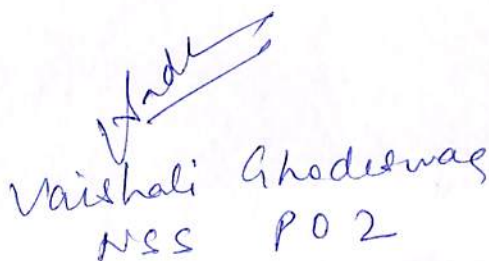 Vaishali Ghodeswar
NSS PO 2